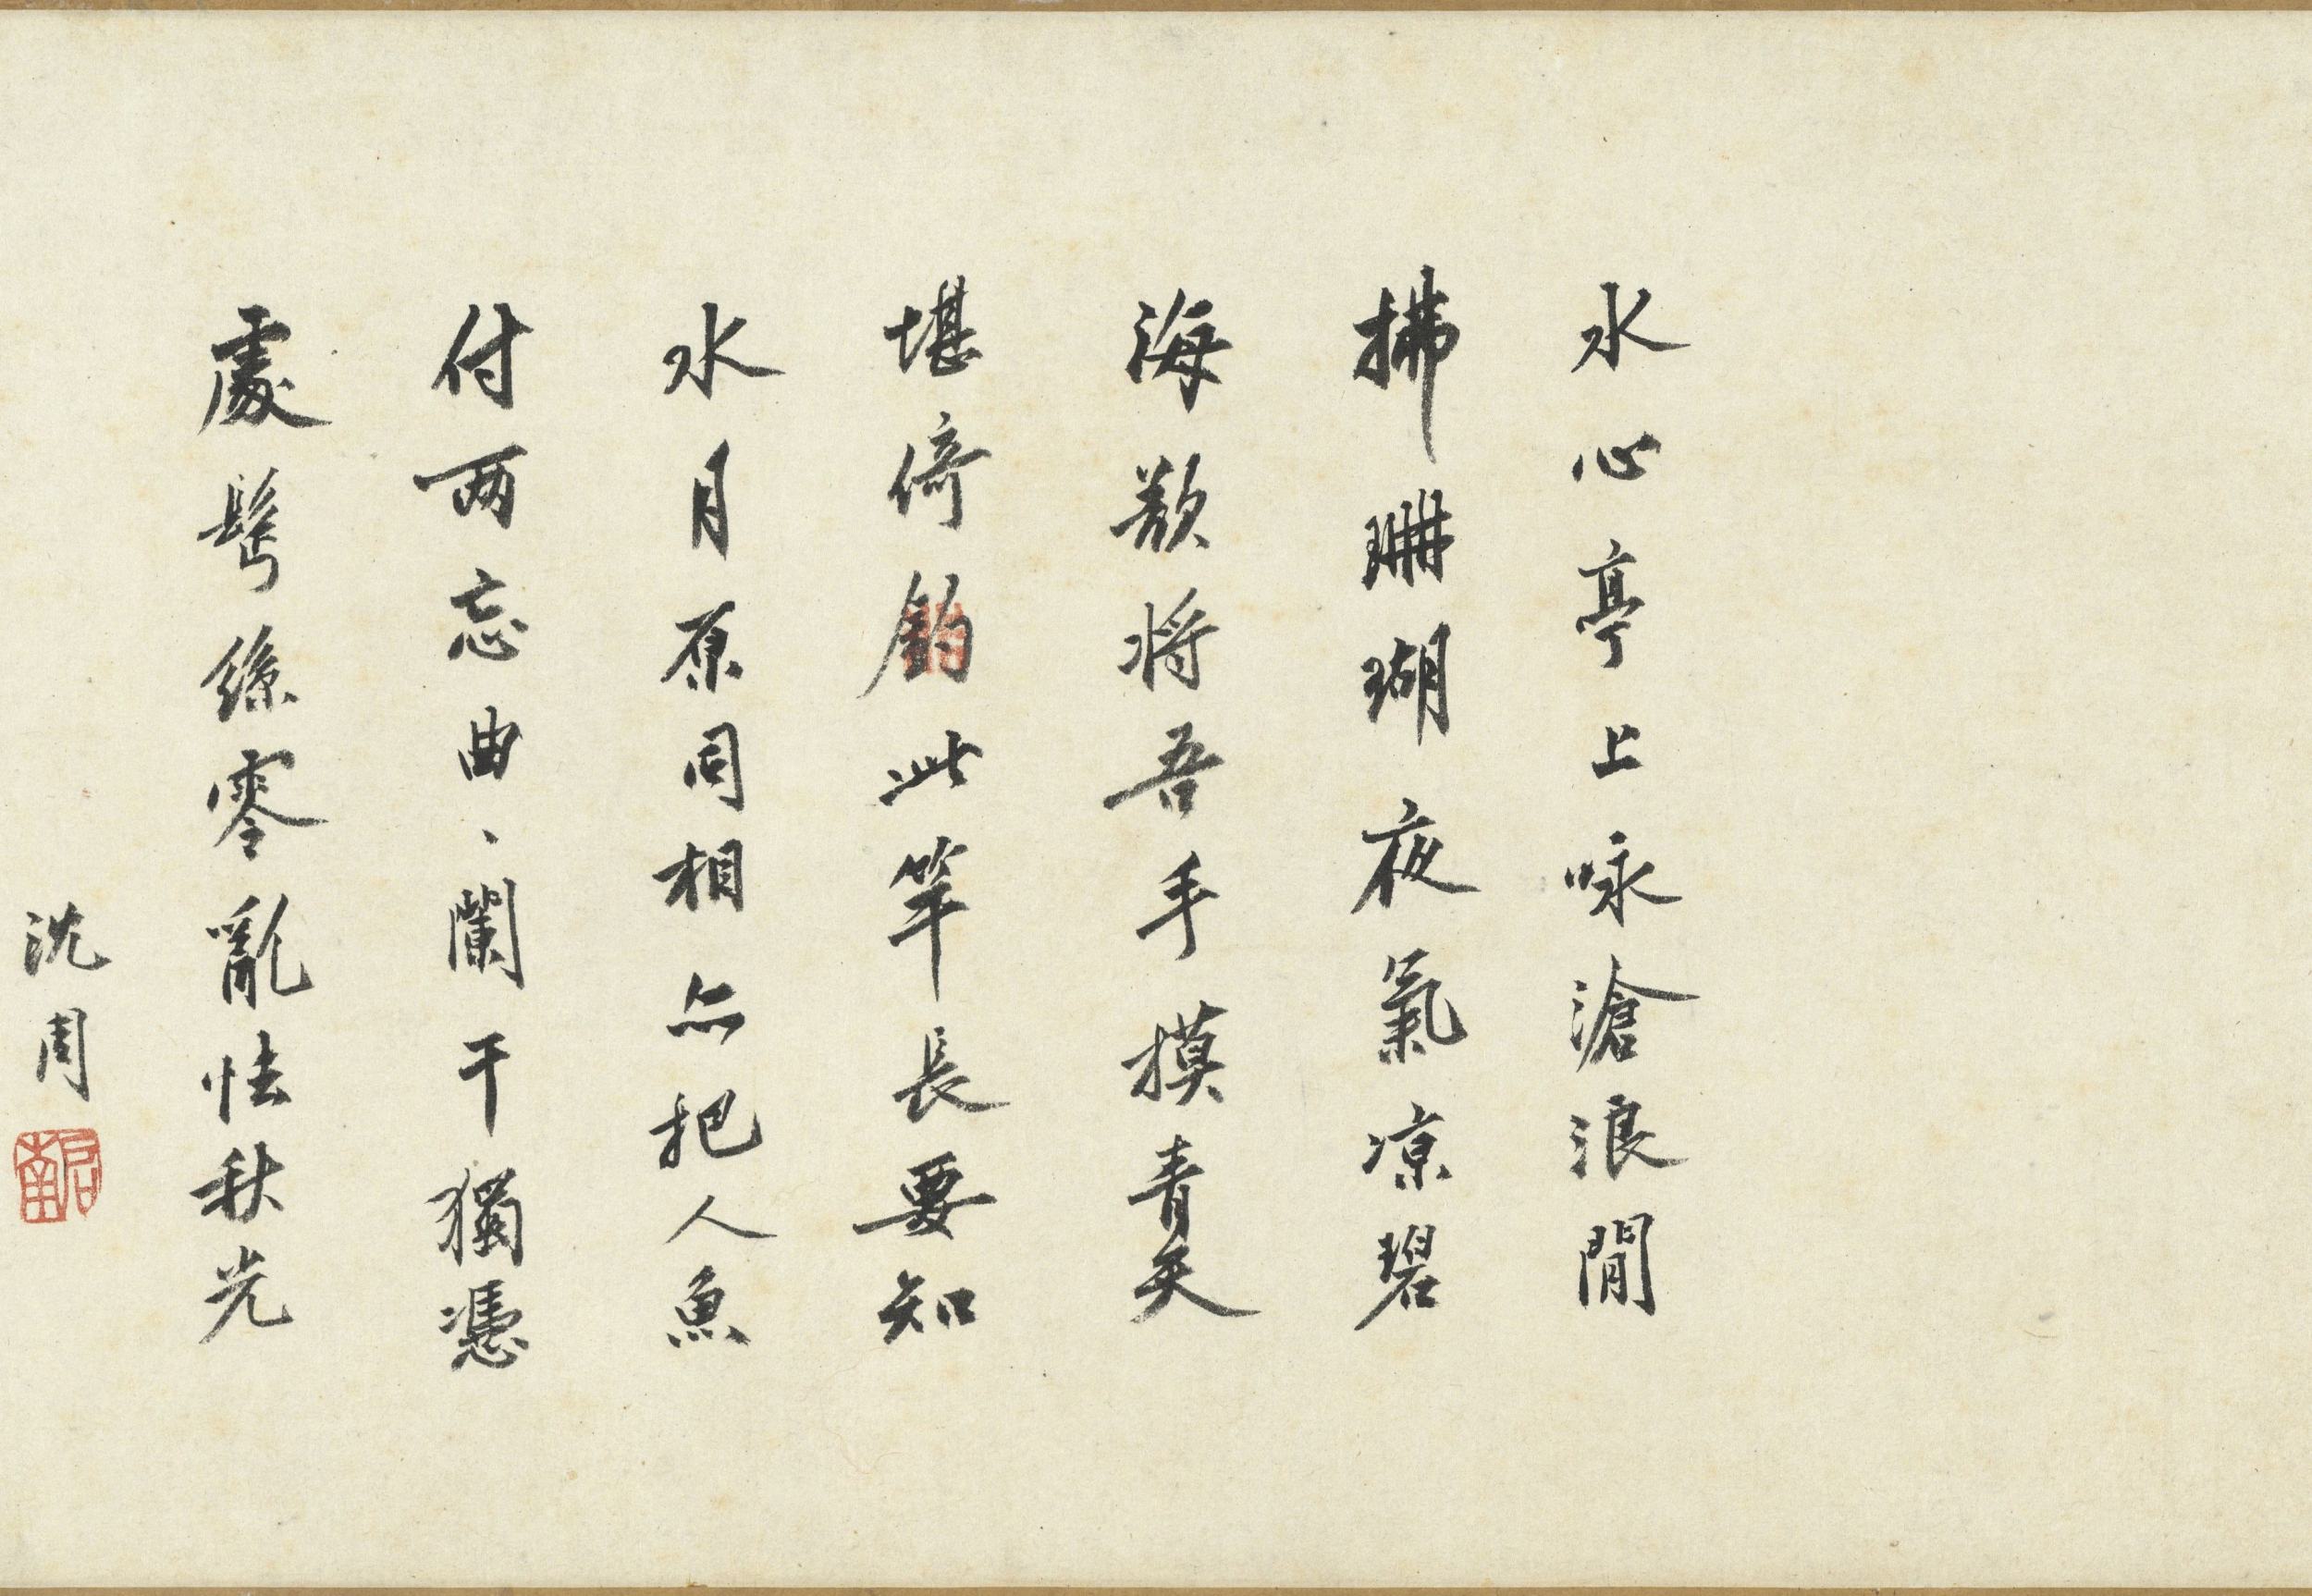 水心亭上咏滄浪閒
拂珊瑚夜氣凉碧
海欲將吾手摸青天
堪倚釣此竿長要知
水月原同相亦把人魚
付两忘曲、闌干獨憑
處鬓絲零亂怯秋光
沈周
啟南